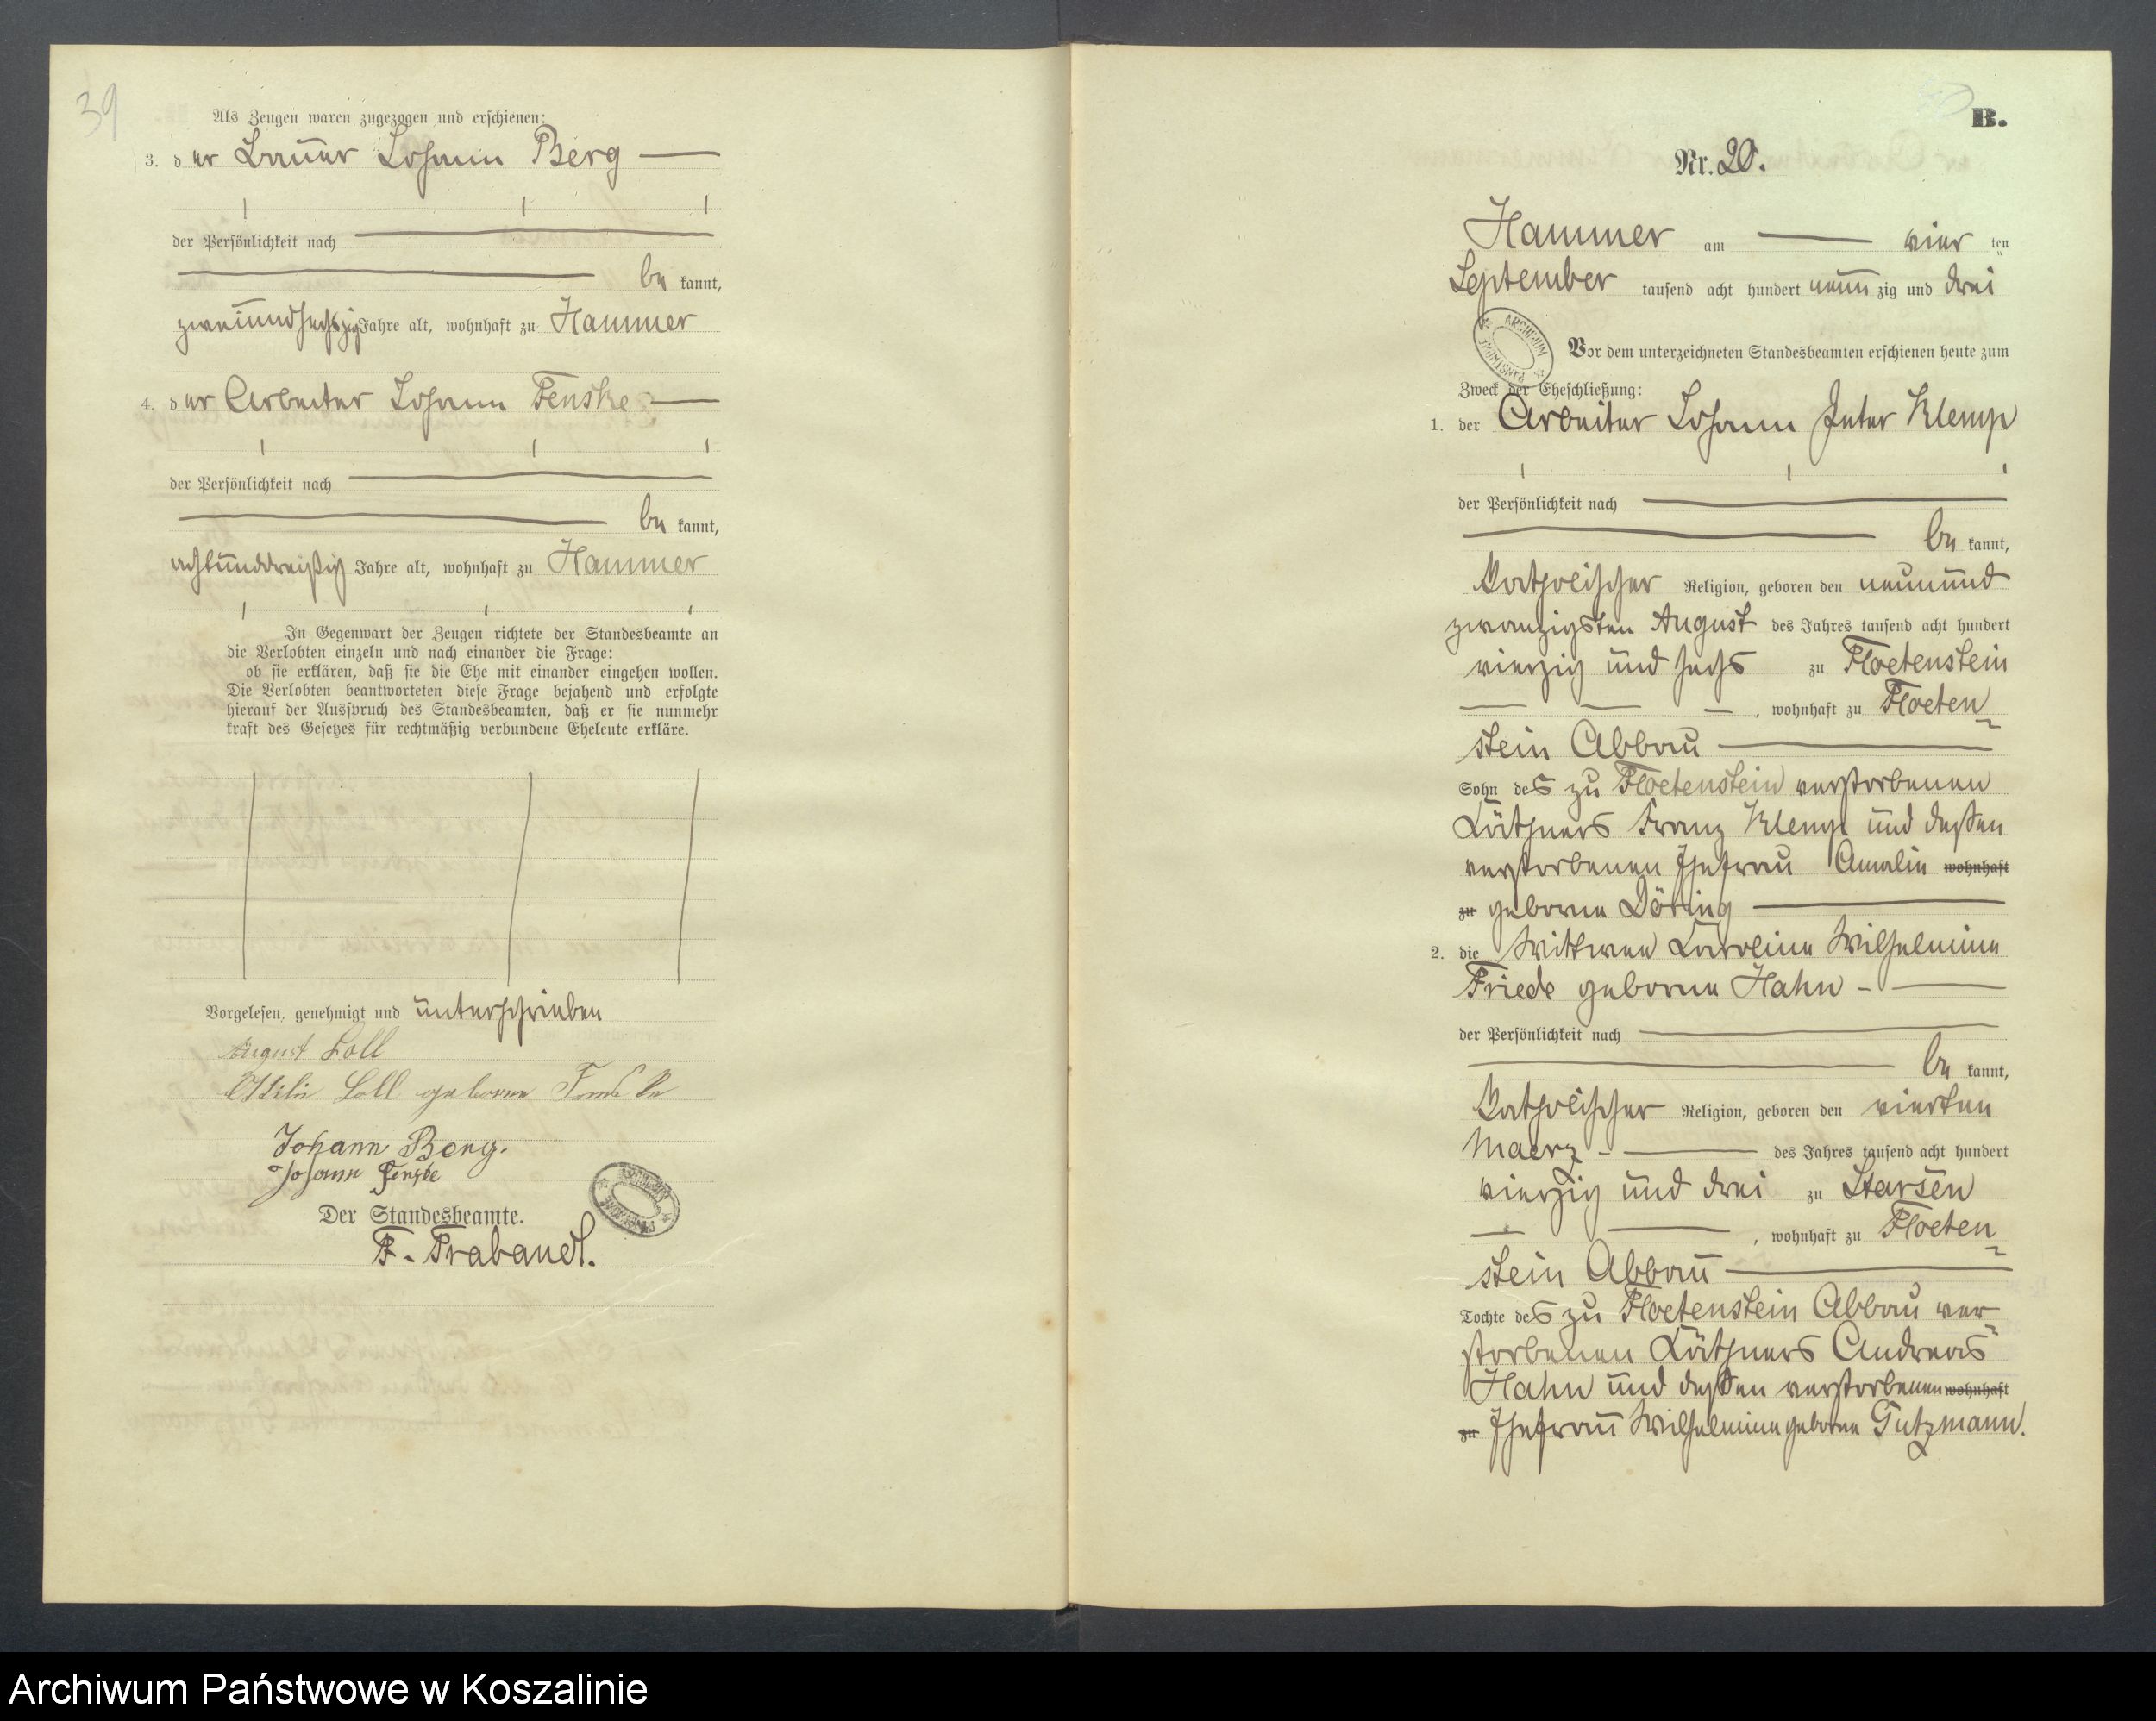 39
Als Zeugen waren zugezogen und erschienen:
3. der Bauer Johann Berg
der Persönlichkeit nach
be kannt,
zweiundsechszig Jahre alt, wohnhaft zu Hammer
4. der Arbeiter Johann Fenske
der Persönlichkeit nach
be kannt,
achtunddreißig Jahre alt, wohnhaft zu Hammer
In Gegenwart der Zeugen richtete der Standesbeamte an
die Verlobten einzeln und nach einander die Frage:
ob sie erklären, daß sie die Ehe mit einander eingehen wollen.
Die Verlobten beantworteten diese Frage bejahend und erfolgte
hierauf der Ausspruch des Standesbeamten, daß er sie nunmehr
kraft des Gesetzes für rechtmäßig verbundene Eheleute erkläre.
Vorgelesen, genehmigt und unterschrieben
August Soll
Ottilie Soll geborne Fenske
Johann Berg.
Johann Fenske
Der Standesbeamte.
F. Trabandt.
B.
Nr. 20.
Hammer am vier ten
September tausend acht hundert neun zig und drei
ARCHIWUM
Vor dem unterzeichneten Standesbeamten erschienen heute zum
Zweck der Eheschließung:
1. der Arbeiter Johann Peter Klemp
der Persönlichkeit nach
be kannt,
katholischer Religion, geboren den neunund
zwanzigsten August des Jahres tausend acht hundert
vierzig und sechs zu Floetenstein
, wohnhaft zu Floeten
stein Abbau
Sohn des zu Floetenstein verstorbenen
Käthners Franz Klemp und dessen
verstorbenen Ehefrau Amalie wohnhaft
zu geborne Döring
2. die Wittwee Karoline Wilhelmine
Friede geborne Hahn
der Persönlichkeit nach
be kannt,
katholischer Religion, geboren den vierten
Maerz des Jahres tausend acht hundert
vierzig und drei zu Starsen
, wohnhaft zu Floeten
stein Abbau
Tochte des zu Floetenstein Abbau ver
storbenen Käthners Andreas
Hahn und dessen verstorbenen wohnhaft
zu Ehefrau Wilhelmine geborne Gutzmann.
Archiwum Państwowe w Koszalinie